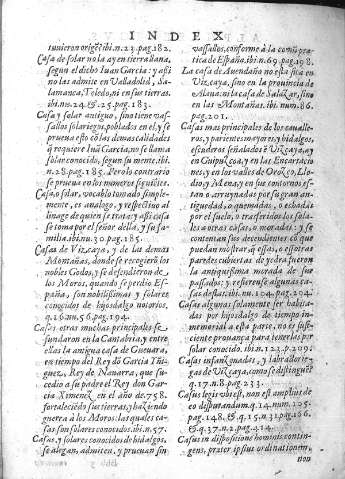 INDEX
tuuieron origẽ ibi.n.23.pag.182.
Casa de solar no la ay en tierra llana,
segun el dicho Iuan Garcia: y assi
no las admite en Valladolid, Sa-
lamanca, Toledo, ni en sus tierras.
ibi.nu.24.&.25.pag.183.
Casa y solar antiguo, sino tiene vas-
sallos solariegos, poblados en el y
prueua esto cõ las demas calidades
q̃ requiere Iuã Garcia, no se llama
solar conocido, segun su mente.ibi.
n.28.pag.185. Pero lo contrario
se prueua en los numeros siguiẽtes.
Casa, o solar, vocablo tomado simple-
mente, es analogo, y respectiuo al
linage de quien se trata: y assi casa
se toma por el señor della, y su fa-
milia.ibi.nu.30.pag.185.
Casas de Vizcaya, y de las demas
Montañas, donde se recogieró los
nobles Godos, y se defendieron de
los Moros, quando se perdio Es-
paña, son nobilissimas y solares
conocidos de hijosdalgo notorios.
q.16.nu.56.pag.194.
Casas otras muchas principales se
fundaron en la Cantabria, y entre
ellas la antigua casa de Gueuara,
en tiempo del Rey dõ Garcia Iñi-
guez, Rey de Nauarra, que su-
cedio a su padre el Rey don Gar-
cia Ximenez en el año de 758.
fortaleciẽdo sus tierras, haziendo
guerra a los Moros: las quales ca-
sas son solares conocidos.ibi.n.57.
Casas, y solares conocidos de hidalgos,
se alegan, admiten, y prueuan sin
vassallos, conforme à la comũ pra-
tica de España.ibi.n.69.pag.198.
La casa de Auendaño no està sita en
Vizcaya, sino en la prouincia de
Alaua: ni la casa de Salazar, sino
en las Montañas. ibi. num.86.
pag.201.
Casas mas principales de los caualle-
ros, y parientes mayores, y hidalgos,
escuderos señalados ẽ Vizcaya, y
en Guipuzcoa, y en las Encartacio
nes, y en los valles de Orozco, Llo-
dio, y Mena, y en sus contornos es-
tan o arruynadas por su gran an-
tiguedad, o quemadas, o echadas
por el suelo, o trasferidos los sola-
res a otras casas, o moradas: y se
contentan sus descendientes cõ que
puedan mostrar, q̃ essas, o essotras
paredes cubiertas de yedra fueron
la antiquissima morada de sus
passados: y refierense algunas ca-
sas destas.ibi.nu.104.pag.204.
Casas algunas solamente ser habita-
das por hijosdalgo de tiempo in-
memorial a esta parte, no es sufi-
ciente prouança para tenerlos por
solar conocido.ibi.n.123.p.209.
Casas infançonadas, y labradorie-
gas de Vizcaya, como se distinguẽ
q.17.n.8.pag.233.
Casus legis vbi est, non est amplius de
eo disputandum. q.14. num.
pag.148.&.q.15.n.31.pag.106.
&.q.37.n.2.pag.414.
Casus in dispositione hominis contin-
gens, præter ipsius ordinationem,
non